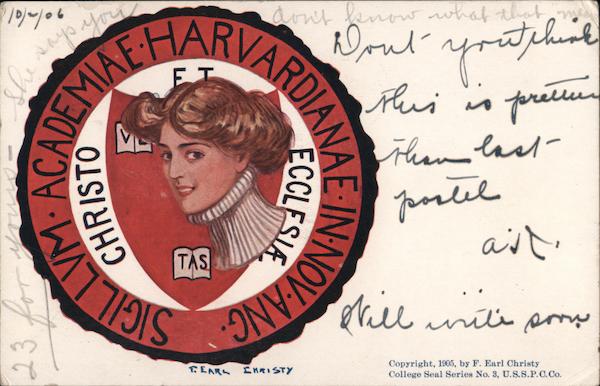 10/2/06
don't know what that
she says you
23 for yours -
Dont you think
this is prettier
than last
postel
Will write soon
SIGILLVM · ACADEMIAE · HARVARDIANAE · IN · NOV · ANG ·
CHRISTO
ET
ECCLESIÆ
VE
TAS
F. EARL CHRISTY
Copyright, 1905, by F. Earl Christy
College Seal Series No. 3, U.S.S.P.C.Co.